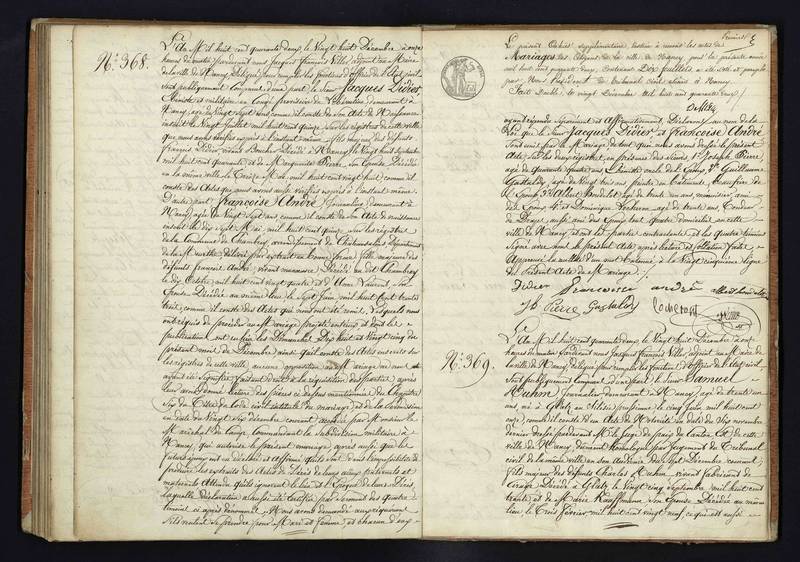 N.° 368.
L'An Mil huit cent quarante deux, le Vingt huit Décembre à onze
heures du matin pardevant nous Jacques François Villot adjoint au Maire
de la ville de Nancy délégué pour remplir les fonctions d'officier de l'état civil
sont publiquement comparus d'une part le Sieur Jacques Didier
militaire en Congé provisoire de libération, demeurant à
Nancy, âgé de Vingt Sept ans comme il conste de son Acte de Naissance
Juillet mil huit cent quinze sur les registres de cette ville
que nous avons à l'instant même, fils majeur des défunts
François Didier, vivant Boucher Décédé à Nancy le Vingt huit Septembre
mil huit cent quarante, et de Marguerite Pierre, son Épouse Décédée
en la même ville, le Treize Mai, mil huit cent vingt huit, comme il
conste des Actes que nous avons aussi vérifiés à l'instant même.
D'autre part Françoise André Journalière, demeurant à
Nancy, âgée de Vingt Sept ans, comme il conste de son Acte de naissance
inscrit le dix Sept Mai, mil huit cent quinze, sur les registres
de la Commune de Chambrey, arrondissement de Château-Salins Département
de la Meurthe, délivré par extrait en bonne forme, fille majeure des
défunts François André, vivant manœuvre Décédé au dit Chambrey
le dix Octobre, mil huit cent vingt quatre, et d'Anne Laurent, son
Épouse Décédée au même lieu, le Sept Juin, mil huit cent trente
huit, comme il conste des Actes qui nous ont été remis, Lesquels nous
ont requis de procéder au Mariage projeté entre eux et dont les
publications ont eu lieu les Dimanches Dix huit et Vingt cinq du
présent mois de Décembre, ainsi qu'il conste des Actes inscrits sur
les registres de cette ville; aucune opposition au Mariage ne nous
ayant été signifiée, faisant droit à la réquisition des parties, après
leur avoir donné lecture des pièces ci dessus mentionnées, du Chapitre
Six du Titre du Code civil intitulé du mariage, et de la permission
en date du Vingt Six décembre courant, accordée par Monsieur le
Maréchal de Camp, Commandant la Subdivision militaire à
Nancy, qui autorise le présent mariage, après aussi que les
futurs époux ont déclaré et affirmé qu'ils sont dans l'impossibilité de
produire les extraits des Actes de Décès de leurs ayeux paternels et
maternels attendu qu'ils ignorent le lieu et l'époque de leurs Décès,
laquelle déclaration a aussi été certifiée par serment des quatre
témoins ci après dénommés, Nous avons demandé aux requérants
s'ils veulent se prendre pour Mari et femme, et chacun d'eux
Le présent Cahier supplémentaire, destiné à recevoir les actes de
Mariages des Citoyens de la ville de Nancy, pour la présente année
mil huit cent quarante deux, contenant Dix feuillets, a été coté et paraphé
par Nous Président du Tribunal civil séant à Nancy.
Fait Double, le vingt Décembre mil huit cent quarante deux
ayant répondu séparément et affirmativement, Déclarons au nom de la
Loi que le Sieur Jacques Didier et Françoise André
sont unis par le Mariage de tout quoi nous avons dressé le présent
Acte, sur les deux registres, en présence des sieurs, 1.° Joseph Pierre,
âgé de quarante quatre ans, oncle de l'époux, 2.° Guillaume
Gastaldy, âgé de Vingt trois ans peintre en bâtiments, beau frère de
l'Époux, 3.° Albert Houdelot âgé de trente un ans, menuisier, ami
des Époux, 4.° et Dominique Locheront âgé de trente ans, Tondeur
de Draps, aussi ami des Époux, tous quatre domiciliés en cette
ville de Nancy, et ont les parties contractantes et les quatre témoins
Signé avec nous le présent Acte, après lecture et Collation faites.
Approuvé la nullité d'un mot raturé à la Vingt cinquième ligne
du présent Acte de Mariage.
Didier francoise andré
J.h Pierre Gastaldy Locheront
N.° 369.
L'An Mil huit cent quarante deux, le Vingt huit Décembre à onze
heures du matin, Pardevant nous Jacques François Villot, adjoint au Maire de
la ville de Nancy délégué pour remplir les fonctions d'Officier de l'État civil,
sont publiquement comparus d'une part le Sieur Samuel
Kuhm, Journalier demeurant à Nancy, âgé de trente un
ans, né à Glatz en Silésie prussienne le cinq Juin mil huit cent
onze, comme il conste d'un Acte de Notoriété en date du dix novembre
dernier dressé pardevant Mr. le Juge de paix du Canton de cette
ville de Nancy, dûment homologué par Jugement du Tribunal
civil de la même ville en son audience du Sept Décembre courant,
fils majeur des défunts Charles Kuhm, vivant fabricant de
Cirage Décédé à Glatz, le Vingt cinq Septembre mil huit cent
trente, et de Marie Kauffmann, son Épouse Décédée au même
lieu, le Trois février, mil huit cent vingt neuf, ce qui est aussi